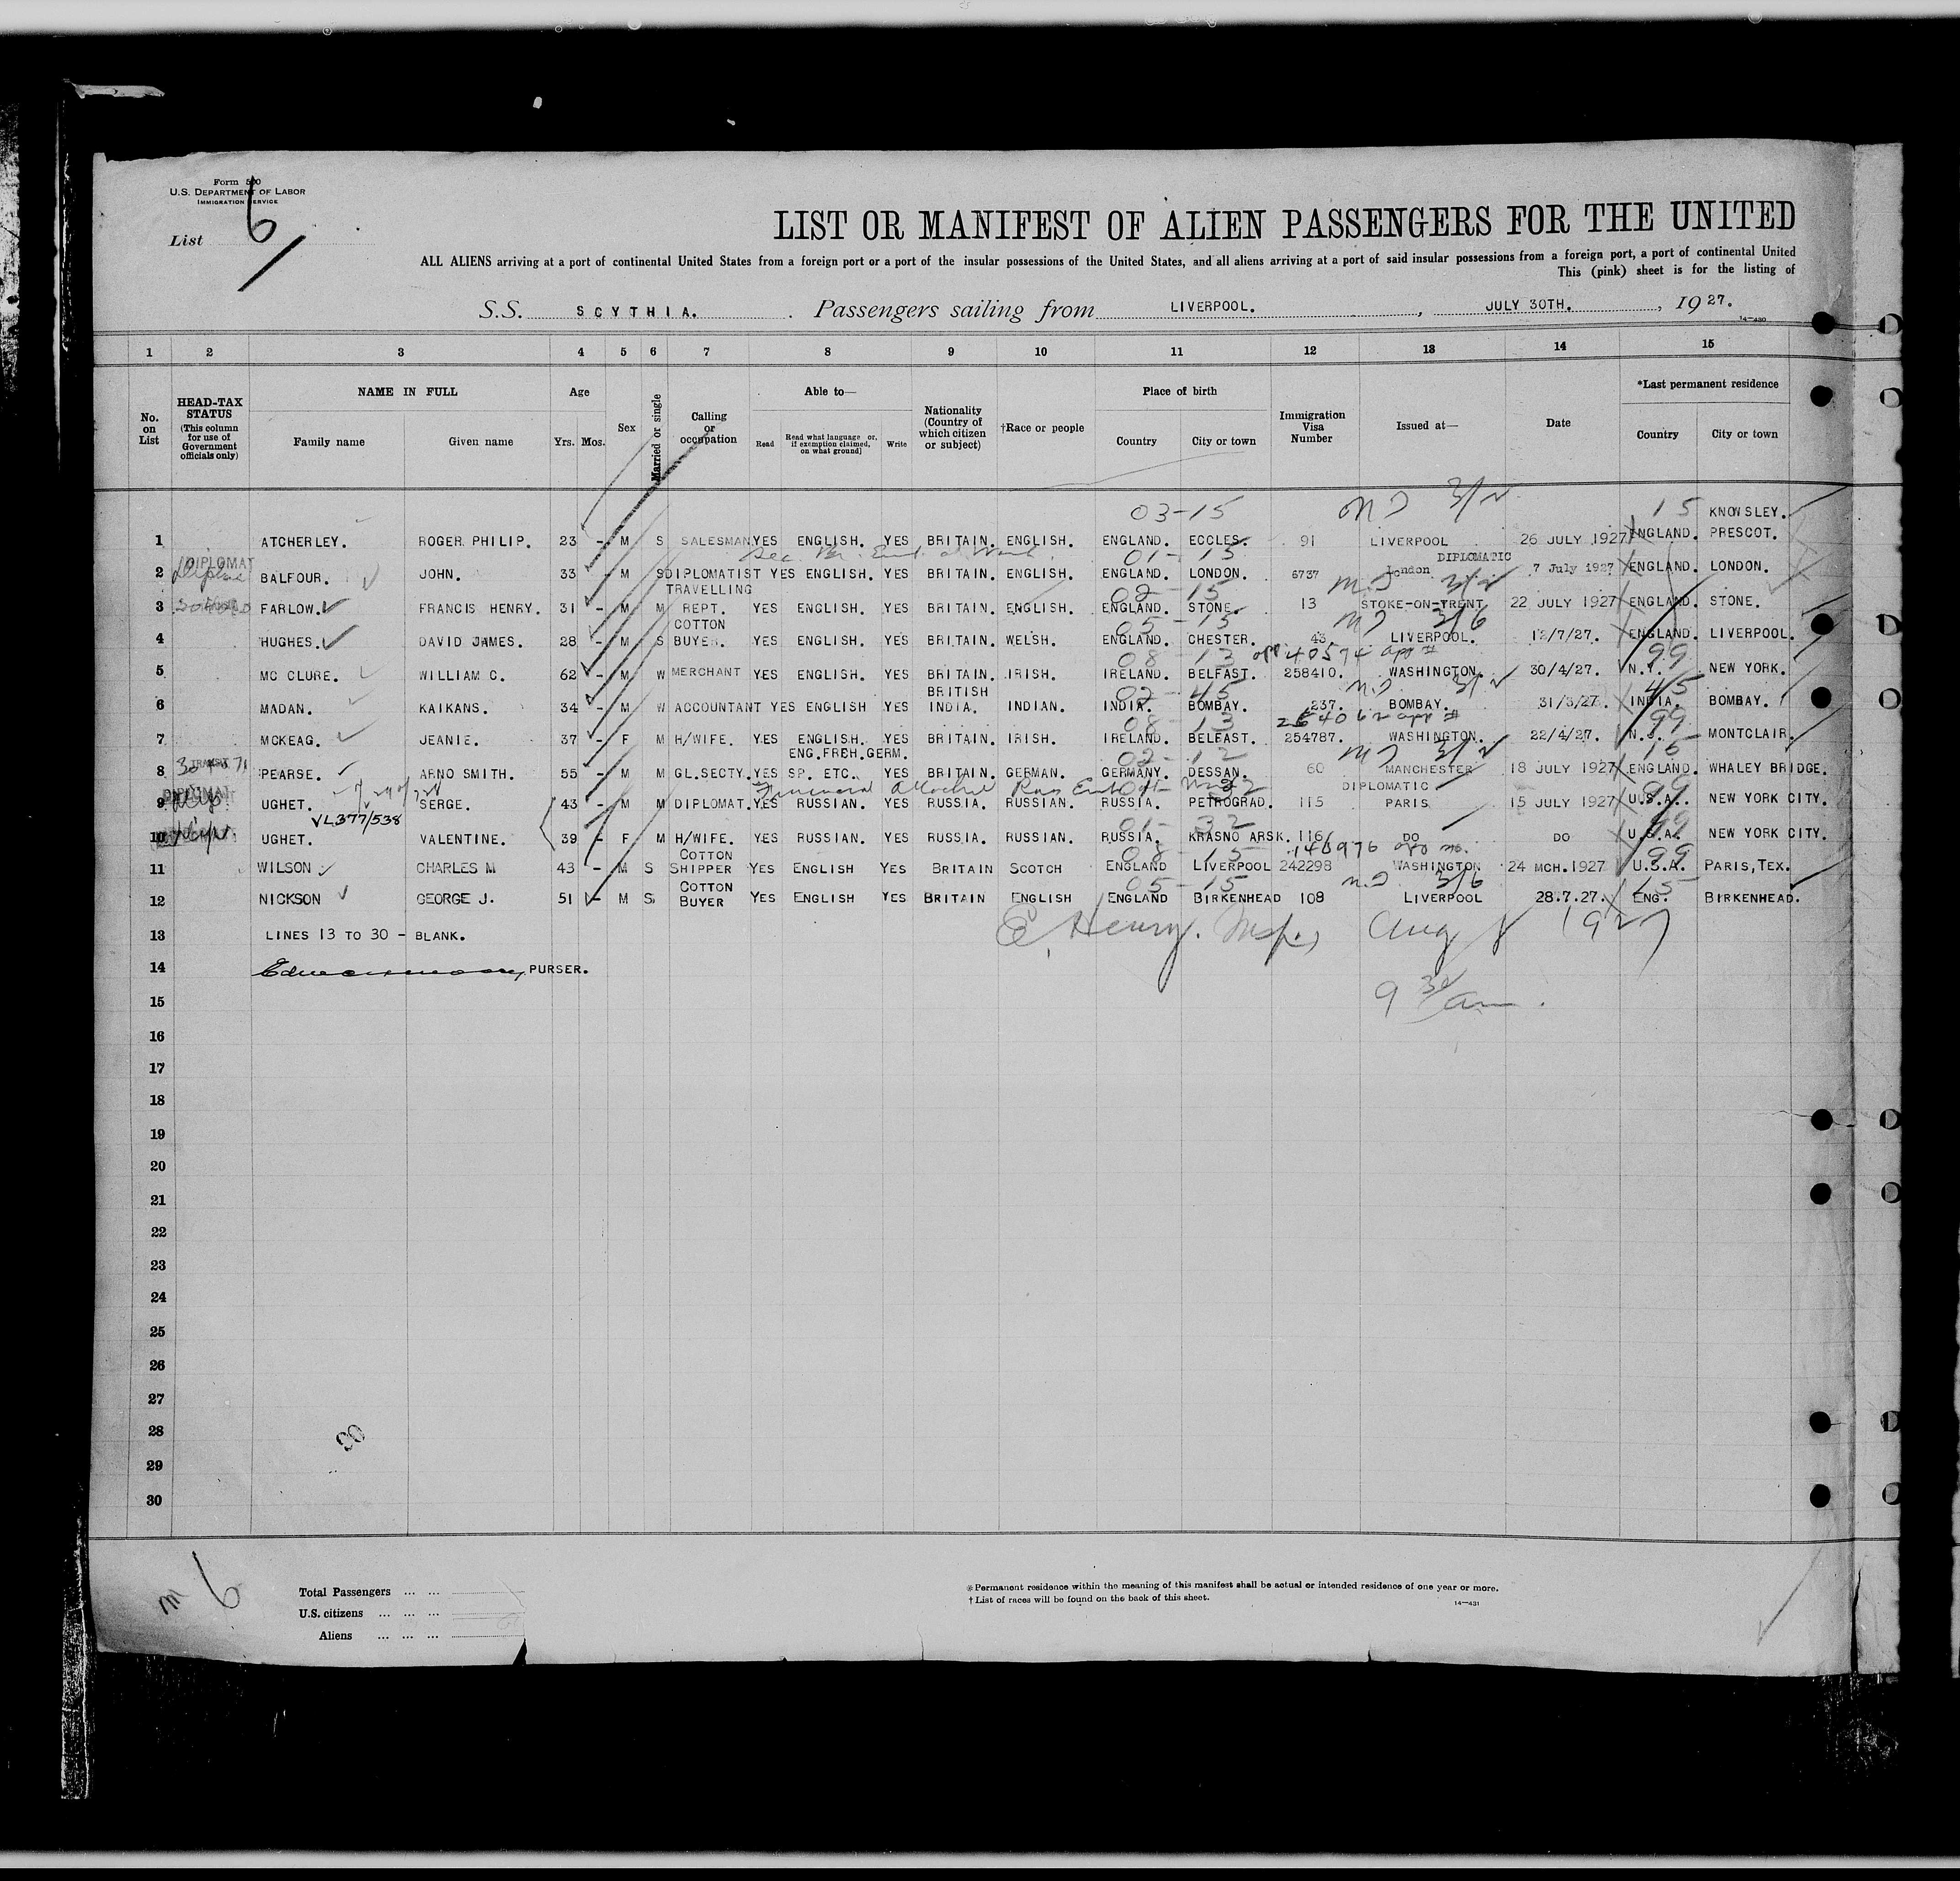 Form 500
U.S. DEPARTMENT OF LABOR
IMMIGRATION SERVICE
List 6
LIST OR MANIFEST OF ALIEN PASSENGERS FOR THE UNITED
ALL ALIENS arriving at a port of continental United States from a foreign port or a port of the insular possessions of the United States, and all aliens arriving at a port of said insular possessions from a foreign port, a port of continental United
This (pink) sheet is for the listing of
S.S. SCYTHIA. Passengers sailing from LIVERPOOL. , JULY 30TH. , 19 27.
14—430
1 2 3 4 5 6 7 8 9 10 11 12 13 14 15
No. on List
HEAD-TAX STATUS (This column for use of Government officials only)
NAME IN FULL Family name Given name
Age Yrs. Mos.
Sex
Married or single
Calling or occupation
Able to— Read Read what language or, if exemption claimed, on what ground] Write
Nationality (Country of which citizen or subject)
†Race or people
Place of birth Country City or town
Immigration Visa Number
Issued at—
Date
*Last permanent residence Country City or town
03-15 3/2 15 KNOWSLEY.
1 ATCHERLEY. ROGER PHILIP. 23 - M S SALESMAN. YES ENGLISH. YES BRITAIN. ENGLISH. ENGLAND. ECCLES. 91 LIVERPOOL 26 JULY 1927 ENGLAND. PRESCOT.
DIPLOMAT 01-15 DIPLOMATIC
2 BALFOUR. JOHN. 33 - M S DIPLOMATIST YES ENGLISH. YES BRITAIN. ENGLISH. ENGLAND. LONDON. 6737 London 7 July 1927 ENGLAND. LONDON.
TRAVELLING 02-15 3/2
3 FARLOW. FRANCIS HENRY. 31 - M M REPT. YES ENGLISH. YES BRITAIN. ENGLISH. ENGLAND. STONE. 13 STOKE-ON-TRENT 22 JULY 1927 ENGLAND. STONE.
COTTON 05-15 3/6
4 HUGHES. DAVID JAMES. 28 - M S BUYER. YES ENGLISH. YES BRITAIN. WELSH. ENGLAND. CHESTER. 43 LIVERPOOL. 12/7/27. ENGLAND. LIVERPOOL.
08-13 40574 app # 99
5 MC CLURE. WILLIAM C. 62 - M W MERCHANT YES ENGLISH. YES BRITAIN. IRISH. IRELAND. BELFAST. 258410. WASHINGTON. 30/4/27. N.Y. NEW YORK.
BRITISH 02-45 3/2 45
6 MADAN. KAIKANS. 34 - M W ACCOUNTANT YES ENGLISH YES INDIA. INDIAN. INDIA. BOMBAY. 237. BOMBAY. 31/5/27. INDIA. BOMBAY.
08-13 264062 app # 99
7 MCKEAG. JEANIE. 37 - F M H/WIFE. YES ENGLISH. YES BRITAIN. IRISH. IRELAND. BELFAST. 254787. WASHINGTON. 22/4/27. N.J. MONTCLAIR.
TRANSIT ENG.FRCH.GERM. 02-12 3/2 15
8 PEARSE. ARNO SMITH. 55 - M M GL.SECTY. YES SP. ETC. YES BRITAIN. GERMAN. GERMANY. DESSAN. 60 MANCHESTER 18 JULY 1927 ENGLAND. WHALEY BRIDGE.
DIPLOMAT Financial DIPLOMATIC 99
9 UGHET. SERGE. 43 - M M DIPLOMAT. YES RUSSIAN. YES RUSSIA. RUSSIAN. RUSSIA. PETROGRAD. 115 PARIS 15 JULY 1927 U.S.A. NEW YORK CITY.
VL377/538 01-32 99
10 UGHET. VALENTINE. 39 - F M H/WIFE. YES RUSSIAN. YES RUSSIA. RUSSIAN. RUSSIA. KRASNO ARSK. 116 DO DO U.S.A. NEW YORK CITY.
COTTON 08-15 146976 99
11 WILSON CHARLES M 43 - M S SHIPPER YES ENGLISH YES BRITAIN SCOTCH ENGLAND LIVERPOOL 242298 WASHINGTON 24 MCH.1927 U.S.A. PARIS,TEX.
COTTON 05-15 3/6 15
12 NICKSON GEORGE J. 51 - M S BUYER YES ENGLISH YES BRITAIN ENGLISH ENGLAND BIRKENHEAD 108 LIVERPOOL 28.7.27. ENG. BIRKENHEAD.
13 LINES 13 TO 30 - BLANK. Henry. Insp., Aug 8 1927
14 PURSER.
15 9 30/am.
16
17
18
19
20
21
22
23
24
25
26
27
28
29
30
6
Total Passengers ... ...
U.S. citizens ... ... ...
Aliens ... ... ...
*Permanent residence within the meaning of this manifest shall be actual or intended residence of one year or more.
† List of races will be found on the back of this sheet.
14—431